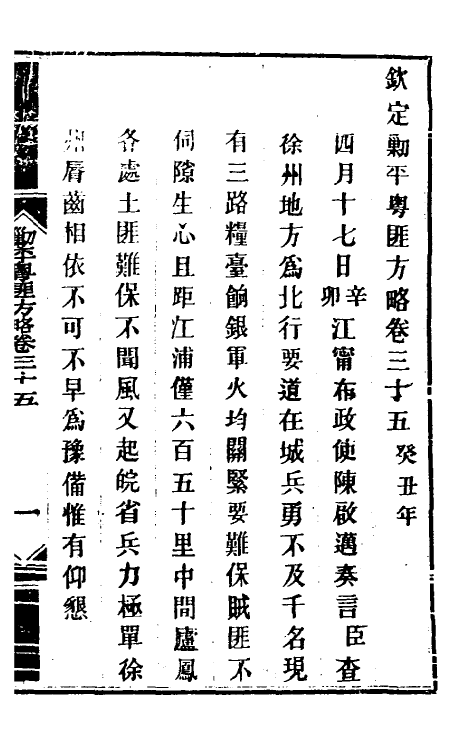 欽定勦平粵匪方略卷三十五 癸丑年
四月十七日辛卯江甯布政使陳啟邁奏言臣查
徐州地方爲北行要道在城兵勇不及千名現
有三路糧臺餉銀軍火均關緊要難保賊匪不
伺隙生心且距江浦僅六百五十里中間廬鳳
各處土匪難保不聞風又起皖省兵力極單徐
州脣齒相依不可不早爲豫備惟有仰懇
勦平粵匪方略卷三十五 一